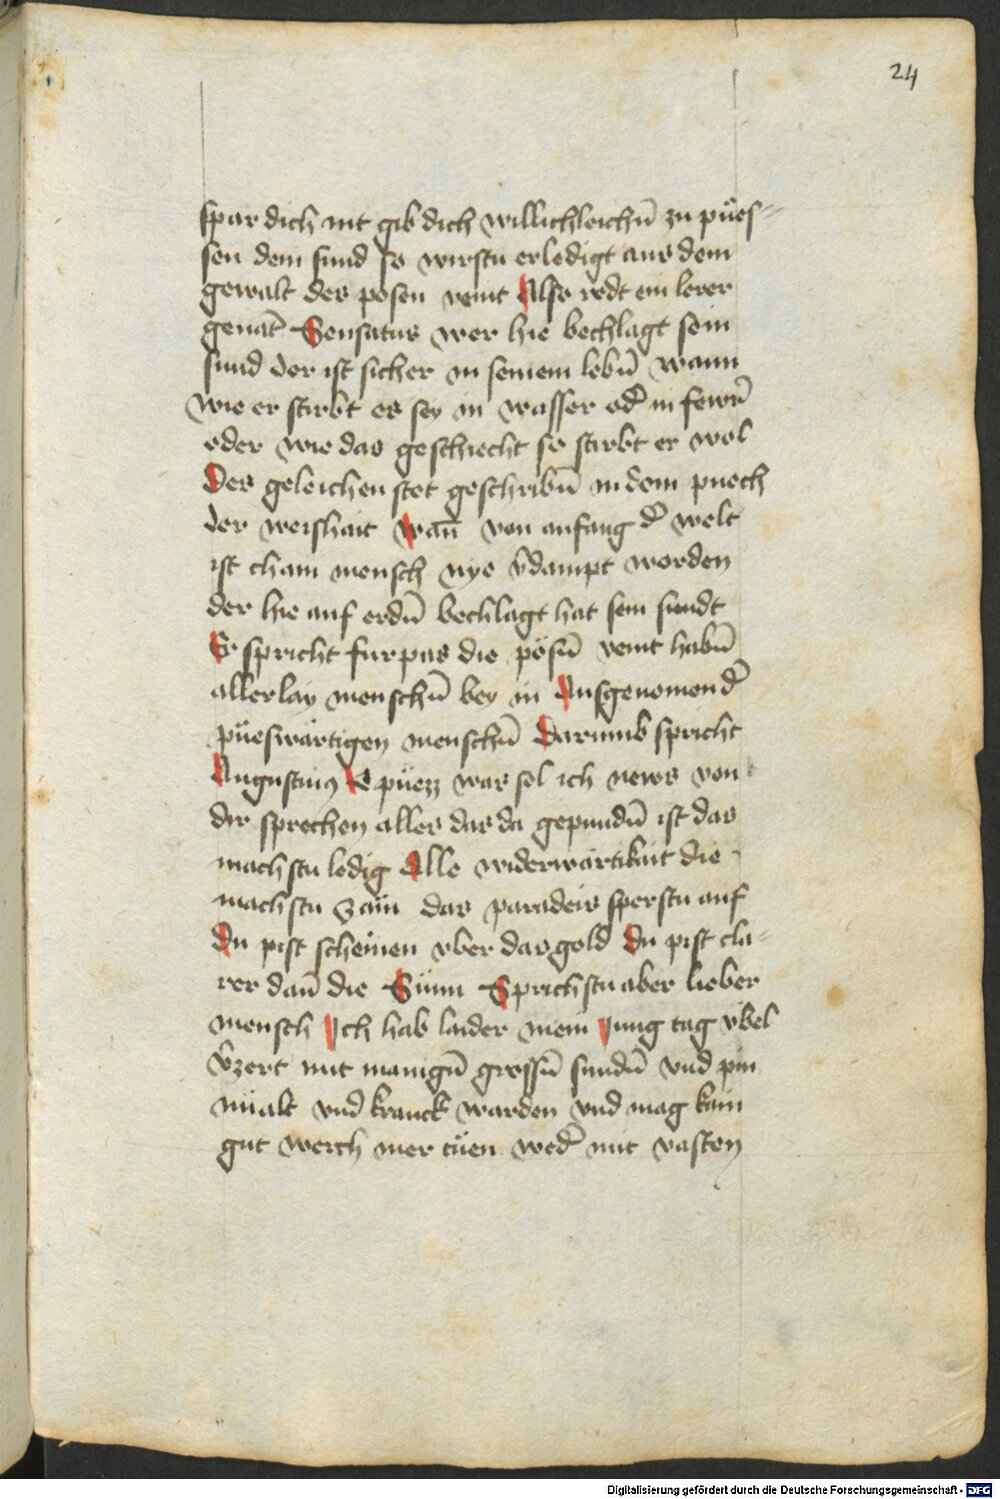 24
spar dich nit gib dich willichleichn̄ zu pües-
sen dem sund so wirstu erledigt aus dem
gewalt des pösen veint Also redt ein lerer
genāt Sensatus wer hie bechlagt sein
sund der ist sicher in seinem lebn̄ wann
wie er stirbt es sey in wasser od̄ in fewr̄
oder wie das geschiecht so stirbt er wol
Des geleichen stet geschribn̄ in dem puech
der weishait wan̄ von anfang d̄ welt
ist cham mensch nye v̄dampt worden
der hie auf erdn̄ bechlagt hat sein sundt
Er spricht furpas die pösn̄ veint habn̄
allerlay menschn̄ bey in Ausgenomen d̄
püeswärtigen menschn̄ Darumb spricht
Augustinꝰ O püezz was sol ich news von
dir sprechen alles das da gepundn̄ ist das
machstu ledig Alle widerwärtikait die
machstu Sam das paradeis sperstu auf
Du pist scheinen vber das gold Du pist cla-
rer dan̄ die Sunn Sprichstu aber lieber
mensch Ich hab laider mein Jung tag vbel
v̄zert mit manign̄ grossn̄ sundn̄ vnd pin
nu alt vnd kranck warden vnd mag kain
gut werch mer tuen wed̄ mit vasten
Digitalisierung gefördert durch die Deutsche Forschungsgemeinschaft - DFG